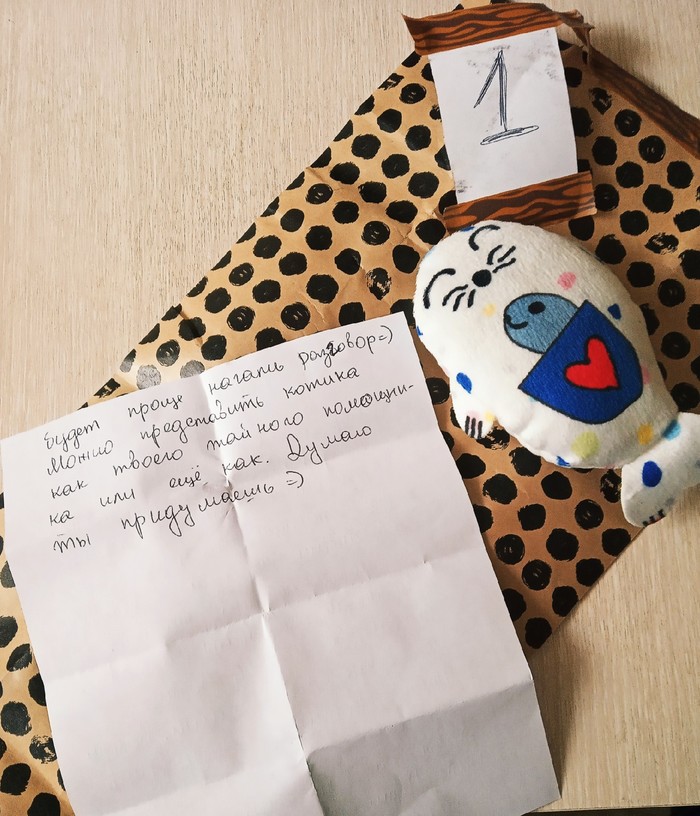 1
будет проще начать разговор=)
Можно представить котика
как твоего тайного помощни-
ка или ещё как. Думаю
ты придумаешь =)